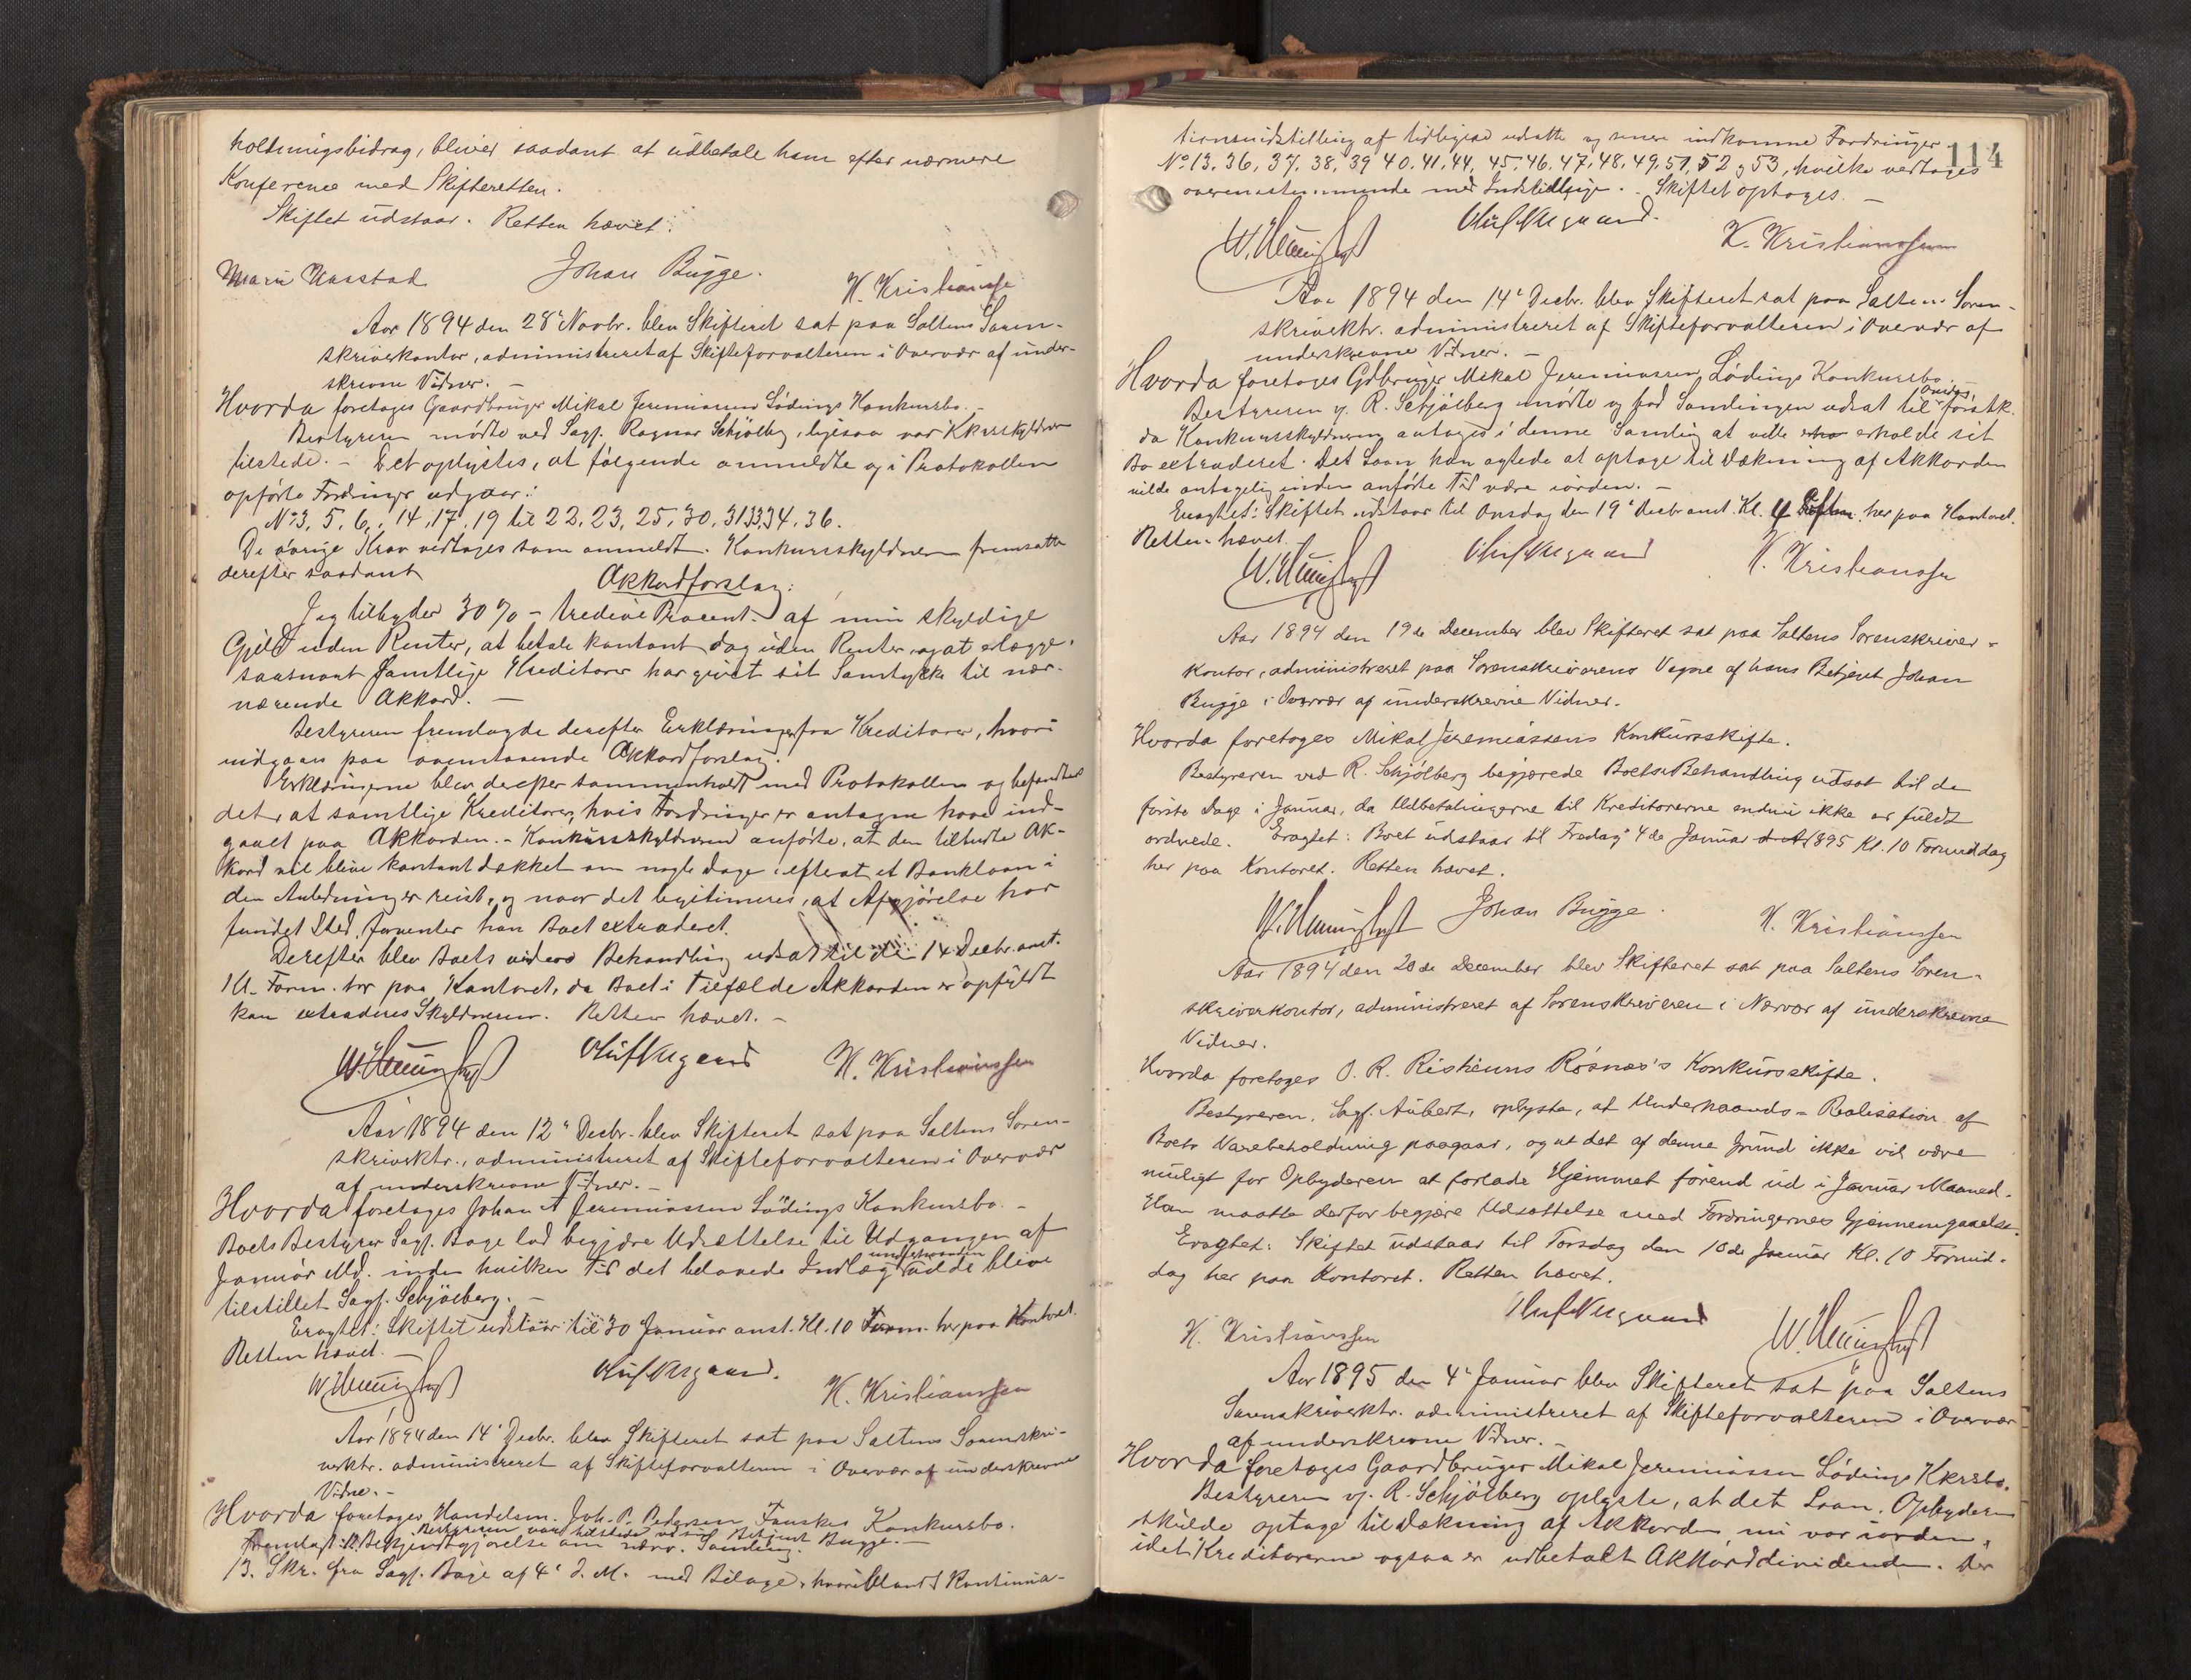 holdningsbidrag, bliver saadant at udbetale ham efter nærmere
Konference med Skifteretten.
Skiftet udstaar. Retten hævet.
Johan Bugge. H. Kristiansen
Aar 1894 den 28' Novbr. blev Skifteret sat paa Saltens Soren-
skriverkontor, administreret af Skifteforvalteren i Overvær af under-
skrevne Vidner. -
Hvorda foretoges Gaardbruger Mikal Jeremiassens Lødings Konkursbo. -
Bestyreren mødte ved Sagf. Ragnar Schjølberg, ligesaa var Kkursskyldneren
tilstede. - Det oplystes, at følgende anmeldte og i Protokollen
opførte Fordringer udgaar:
No 3, 5, 6, 14, 17, 19 til 22, 23, 25, 30, 31 33 34, 36.
De øvrige Krav vedtoges som anmeldt. Konkursskyldneren fremsatte
derefter saadant
Akkordforslag:
Jeg tilbyder 30% - tredive Procent - af min skyldige
Gjeld uden Renter, at betale kontant dog uden Renter, og at erlægge
saasnart samtlige Kreditorer har givet sit Samtykke til nær-
værende Akkord. -
Bestyreren fremlagde derefter Erklæringer fra Kreditorer, hvori
indgaaes paa ovenstaaende Akkordforslag.
Erklæringerne blev derefter sammenholdt med Protokollen og befandtes
det, at samtlige Kreditorer, hvis Fordringer er antagne have ind-
gaaet paa Akkorden. - Konkursskyldneren anførte, at den tilbudte Ak-
kord vil blive kontant dækket om nogle Dage efterat et Banklaan i
den Anledning er reist, og naar det legitimeres, at Afgjørelse har
fundet Sted, forventer han Boet extraderet.
Derefter blev Boets videre Behandling udsat til den 14 Decbr. anst.
Kl. Form. her paa Kontoret, da Boet i Tilfælde Akkorden er opfyldt
kan extraderes Skyldneren. Retten hævet. -
H. Kristianssen
Aar 1894 den 12' Decbr. blev Skifteret sat paa Saltens Soren-
skriverktr., administreret af Skifteforvalteren i Overvær
af underskrevne Vidner. -
Hvorda foretoges Johan A Jeremiassen Lødings Konkursbo. -
Boets Bestyrer Sagf. Bage lod begjære Udsættelse til Udgangen af
Januar Md. inden hvilken Tid det belavede Indlæg underhaanden vilde blive
tilstillet Sagf. Schjølberg. -
Eragtet: Skiftet udstaar til 30 Januar anst. Kl. 10 Form. her paa Kontoret.
Retten hævet. -
H. Kristianssen
Aar 1894 den 14' Decbr. blev Skifteret sat paa Saltens Sorenskri-
verktr. administreret af Skifteforvalteren i Overvær af underskrevne
Vidne. -
Hvorda foretoges Handelsm. Joh. P. Pedersen Fauskes Konkursbo.
Bestyreren var tilstede ved Betjent Bugge. -
Fremlagt: A. Bekjendtgjørelse om nærv. Samling.
B. Skr. fra Sagf. Bage af 4' d. M. med Bilage, hvoriblandt Kontinua-
114
tionsindstilling af tidligere udsatte og senere indkomne Fordringer
No 13, 36, 37, 38, 39 40, 41, 44, 45, 46, 47, 48, 49, 51, 52 og 53, hvilke vedtages
overensstemmende med Indstillingen. - Skiftet optoges. -
K. Kristianssen
Aar 1894 den 14' Decbr. blev Skifteret sat paa Saltens Soren-
skriverktr. administreret af Skifteforvalteren i Overvær af
underskrevne Vidner. -
Hvorda foretoges Gdbruger Mikal Jeremiassen Lødings Konkursbo.
Bestyreren v. R. Schjølberg mødte og bad Samlingen udsat til Onsdag, førstk.
da Konkursskyldneren antages i denne Samling at ville erholde sit
Bo extraderet. Det Laan han agtede at optage til Dækning af Akkorden
vilde antagelig inden anførte Tid være iorden. -
Eragtet: Skiftet udstaar til Onsdag den 19' Decbr. anst. Kl. 4 Eftm. her paa Kontoret.
Retten hævet.
K. Kristianssen
Aar 1894 den 19de December blev Skifteret sat paa Saltens Sorenskriver-
kontor, administreret paa Sorenskriverens Vegne af hans Betjent Johan
Bugge i Overvær af underskrevne Vidner.
Hvorda foretoges Mikal Jeremiassens Konkursskifte.
Bestyreren ved R. Schjølberg begjærede Boets Behandling udsat til de
første Dage i Januar, da Udbetalingerne til Kreditorerne endnu ikke er fuldt
ordnede. Eragtet: Boet udstaar til Fredag 4de Januar 1895 Kl. 10 Formiddag
her paa Kontoret. Retten hævet.
Johan Bugge. H. Kristianssen
Aar 1894 den 20de December blev Skifteret sat paa Saltens Soren-
skriverkontor, administreret af Sorenskriveren i Nærvær af underskrevne
Vidner.
Hvorda foretoges O. R. Røsnæs's Konkursskifte.
Bestyreren, Sagf. Aubert, oplyste, at Underhaands-Realisation af
Boets Varebeholdning paagaar, og at det af denne Grund ikke vil være
muligt for Opbyderen at forlade Hjemmet førend ud i Januar Maaned.
Han maatte derfor begjære Udsættelse med Fordringernes Gjennemgaaelse.
Eragtet: Skiftet udstaar til Torsdag den 10de Januar Kl. 10 Formid-
dag her paa Kontoret. Retten hævet.
H. Kristianssen
Aar 1895 den 4' Januar blev Skifteret sat paa Saltens
Sorenskriverktr. administreret af Skifteforvalteren i Overvær
af underskrevne Vidner. -
Hvorda foretoges Gaardbruger Mikal Jeremiassen Lødings Kkrsbo.
Bestyreren v. R. Schjølberg oplyste, at det Laan, Opbyderen
skulde optage til Dækning af Akkorden nu var iorden,
idet Kreditorerne ogsaa er udbetalt Akkorddividenden. Der